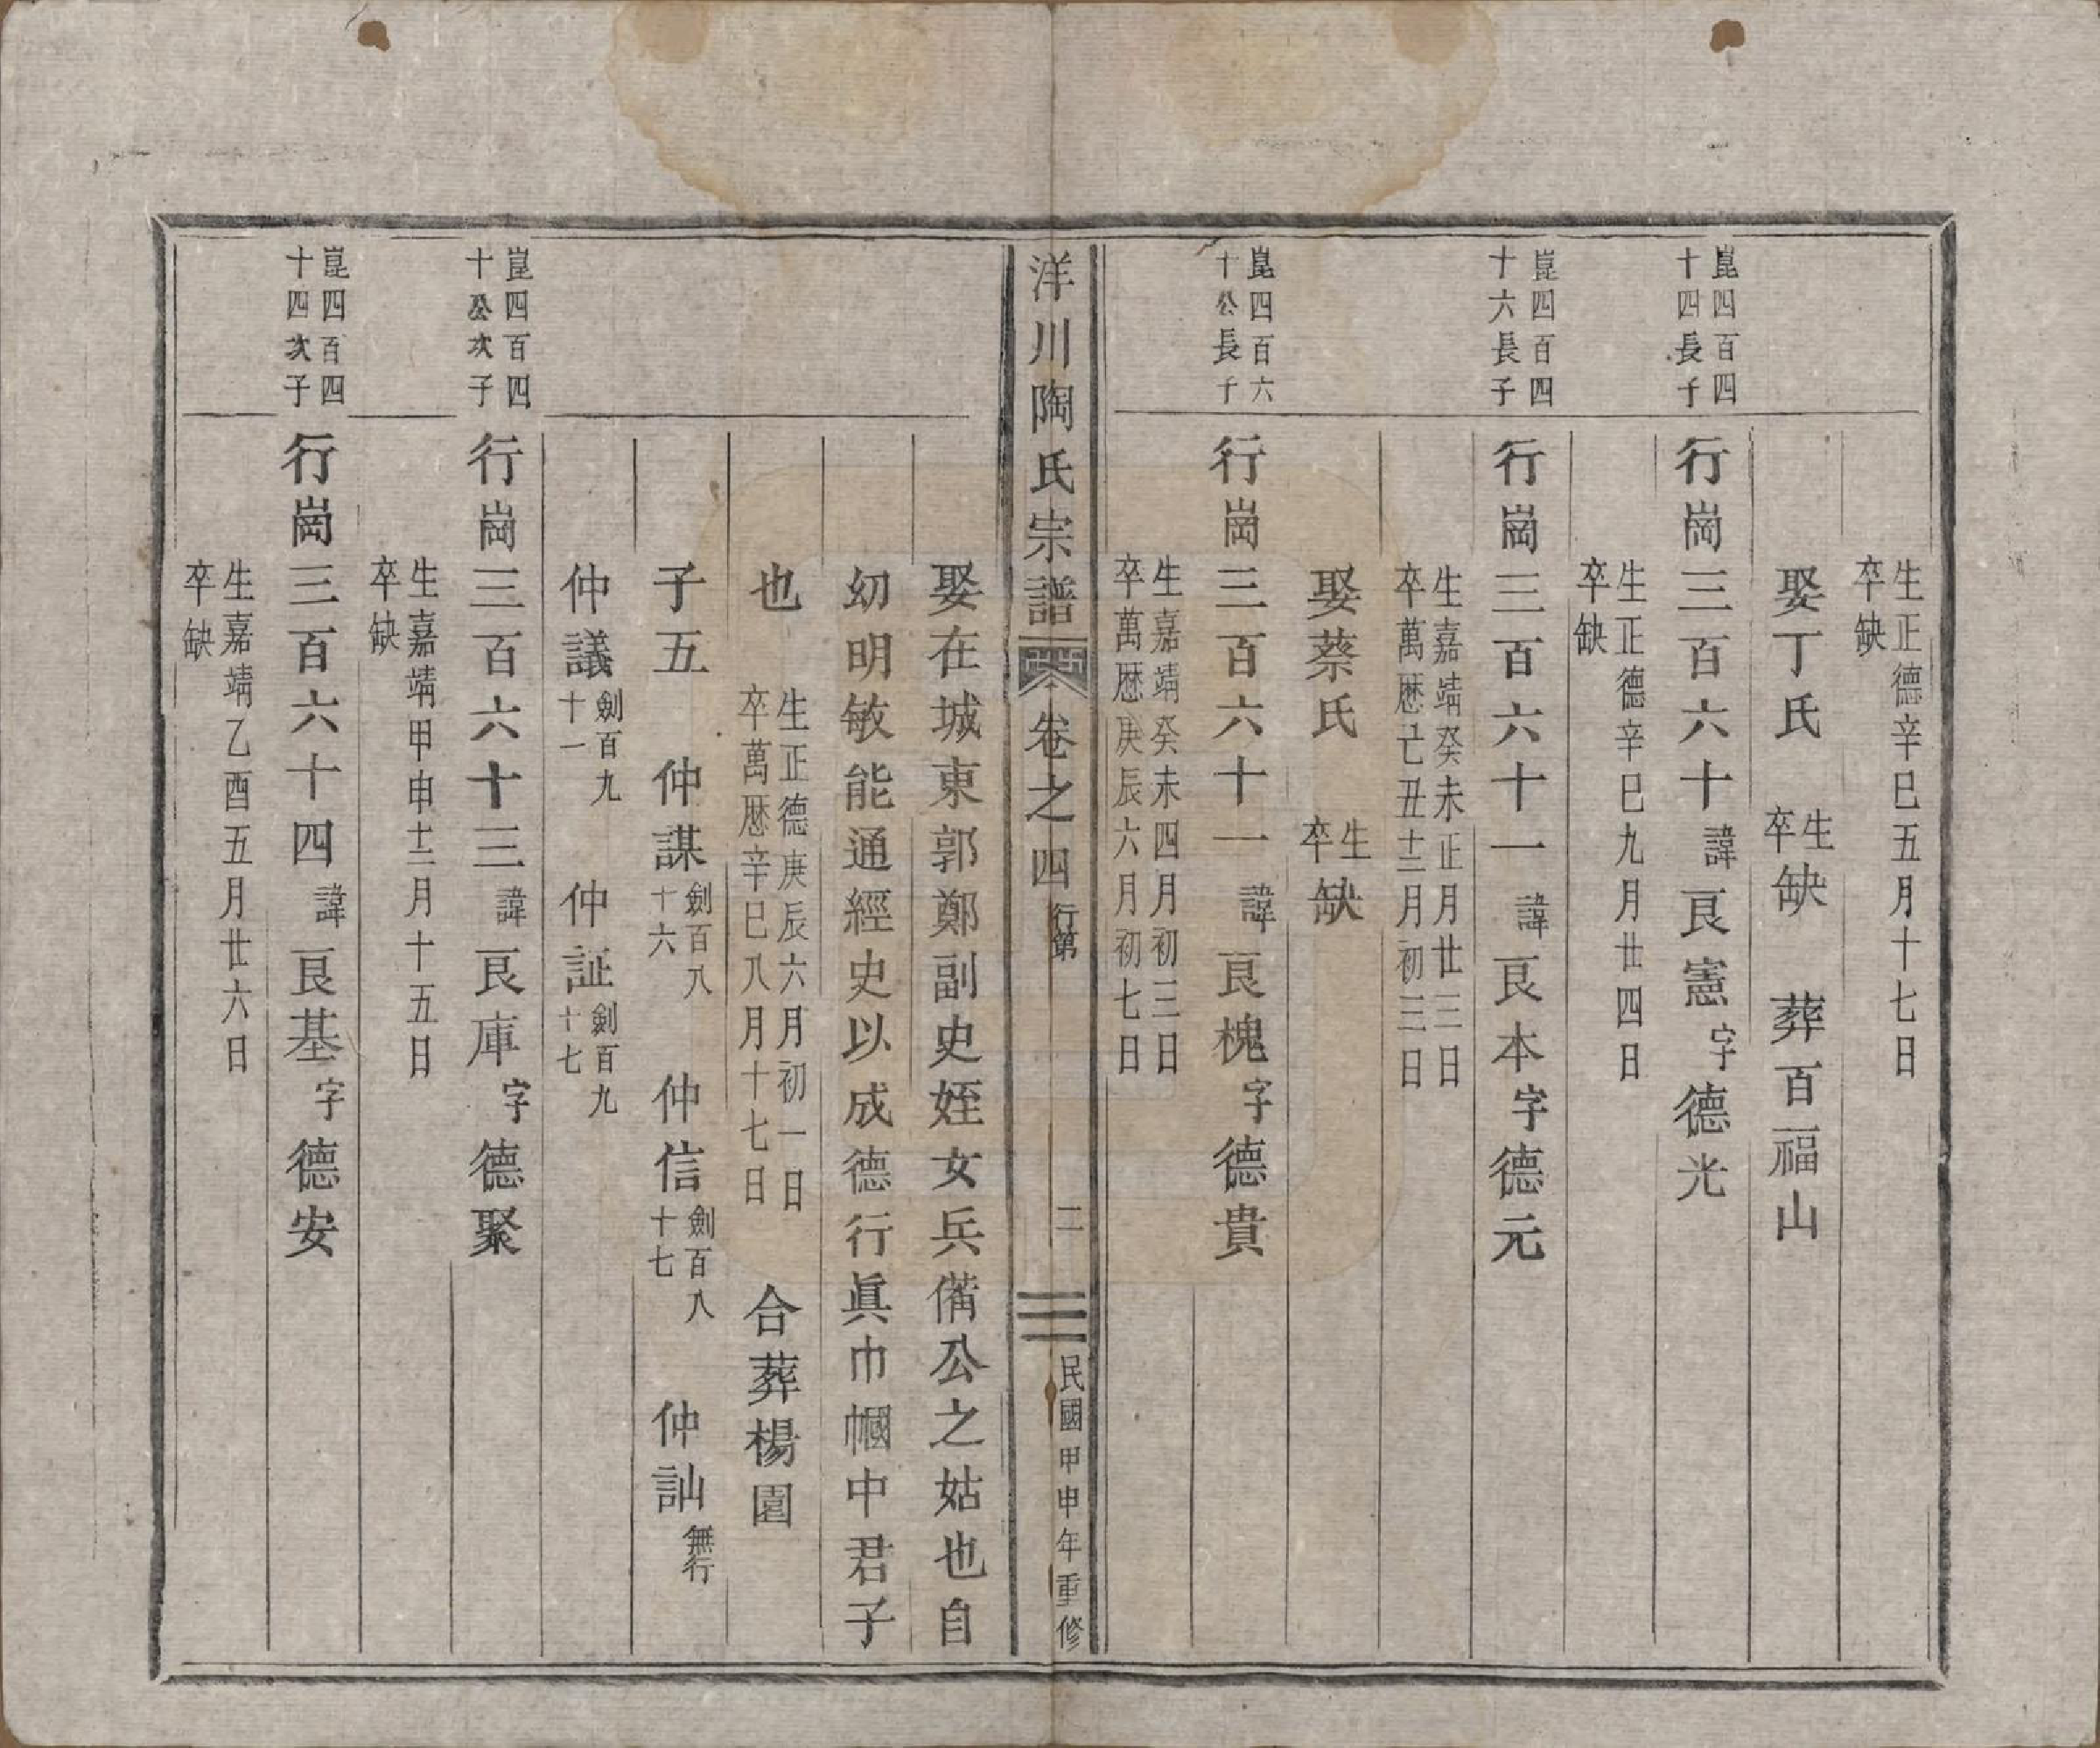 生正德辛巳五月十七日
卒缺
娶丁氏 生卒缺 葬百福山
崑四百四十四長子
行崗三百六十 諱艮憲 字德光
生正德辛巳九月廿四日
卒缺
崑四百四十六長子
行崗三百六十一 諱艮本 字德元
生嘉靖癸未正月廿三日
卒萬厯亡丑十二月初三日
娶蔡氏 生卒缺
崑四百六十公長子
行崗三百六十一 諱艮槐 字德貴
生嘉靖癸未四月初三日
卒萬厯庚辰六月初七日
洋川陶氏宗譜 卷之四 行第 二 民國甲申年重修
娶在城東郭鄭副史姪女兵備公之姑也自
幼明敏能通經史以成德行眞巾幗中君子
也 生正德庚辰六月初一日 卒萬厯辛巳八月十七日 合葬楊園
子五 仲謀劍百八十六 仲信劍百八十七 仲訕無行
仲議劍百九十一 仲証劍百九十七
崑四百四十公次子
行崗三百六十三 諱艮庫 字德聚
生嘉靖甲申十二月十五日
卒缺
崑四百四十四次子
行崗三百六十四 諱艮基 字德安
生嘉靖乙酉五月廿六日
卒缺